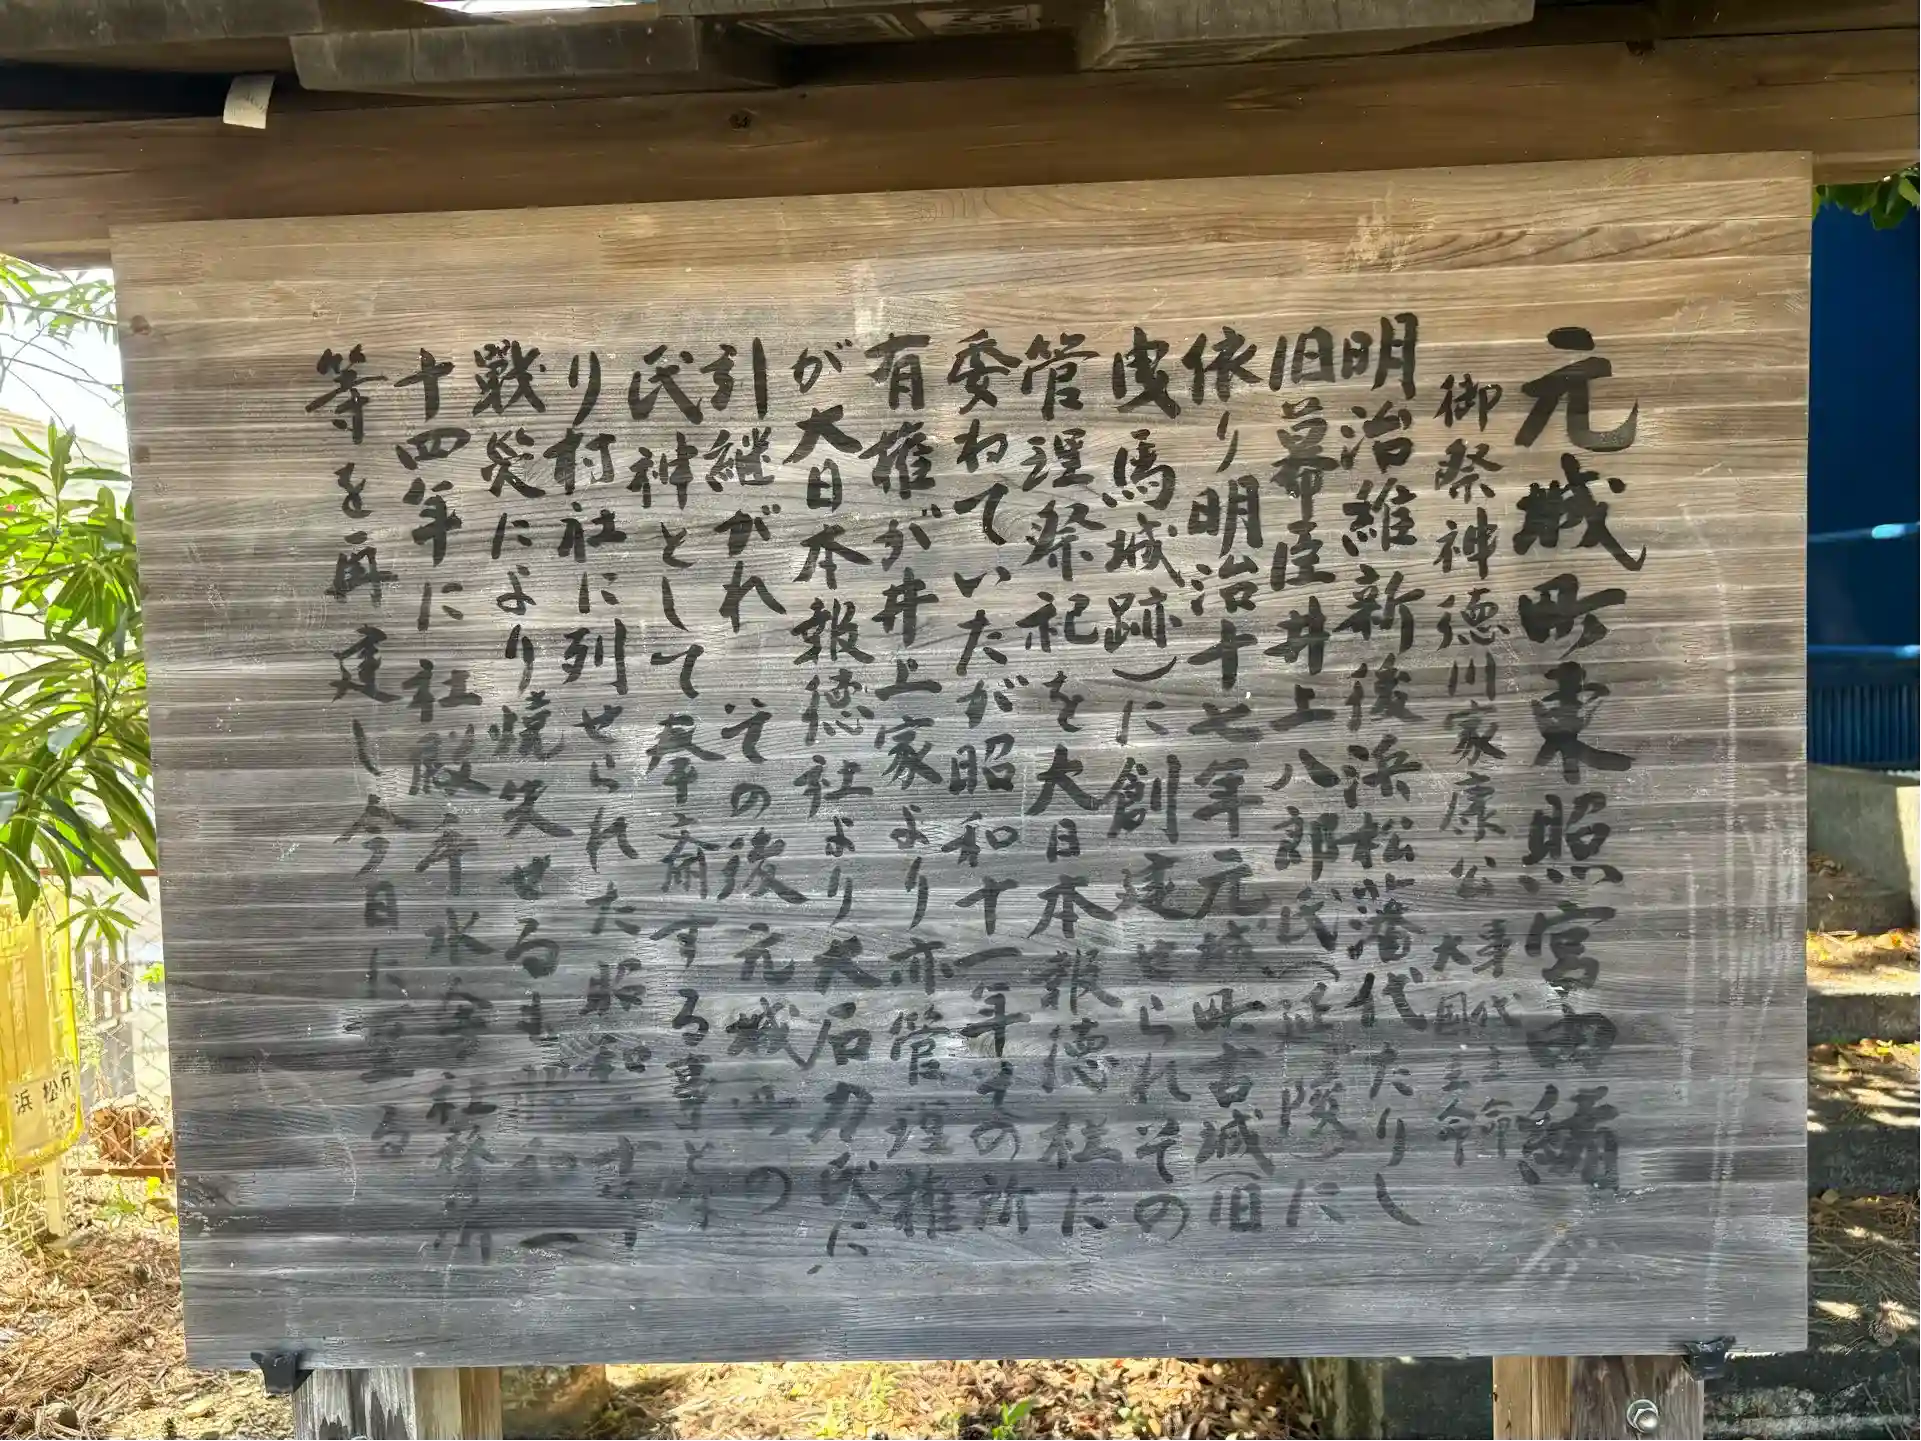 元城町東照宮由緒
御祭神徳川家康公 事代主命
大国主命
明治維新後浜松藩代たりし
旧幕臣井上八郎氏(延陵)に
依り明治十七年元城町古城(旧
曳馬城跡)に創建せられその
管理祭祀を大日本報徳社に
委ねていたが昭和十一年その所
有権が井上家より亦管理権
が大日本報徳社より大石力氏に
引継がれ その後元城町の
氏神として奉斎する事と
り村社に列せられた昭和二十
戦災により焼失せるも昭和三
十四年に社殿手水舎社務所
等を再建し今日に至る
浜松市